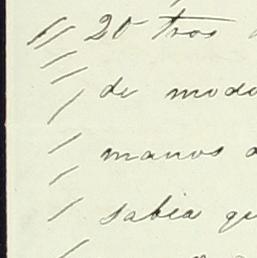 " 20 tros
de modo
manos
sabia qu